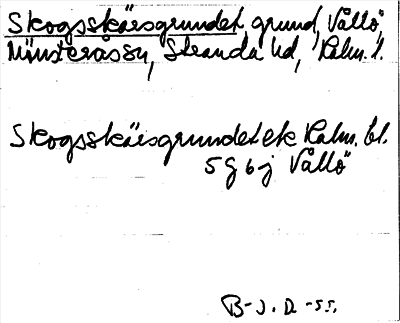 Skogsskärsgrundet, grund, Vållö,
Mönsteråssn, Stranda hd, Kalm. l.
Skogsskärsgrundet ek Kalm. bl.
5 G 6 j Vållö
B-J. D. -55.